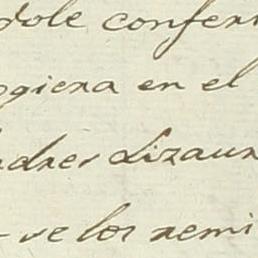 dole confer
ogiera en el
ndres Lizaur
se los remi